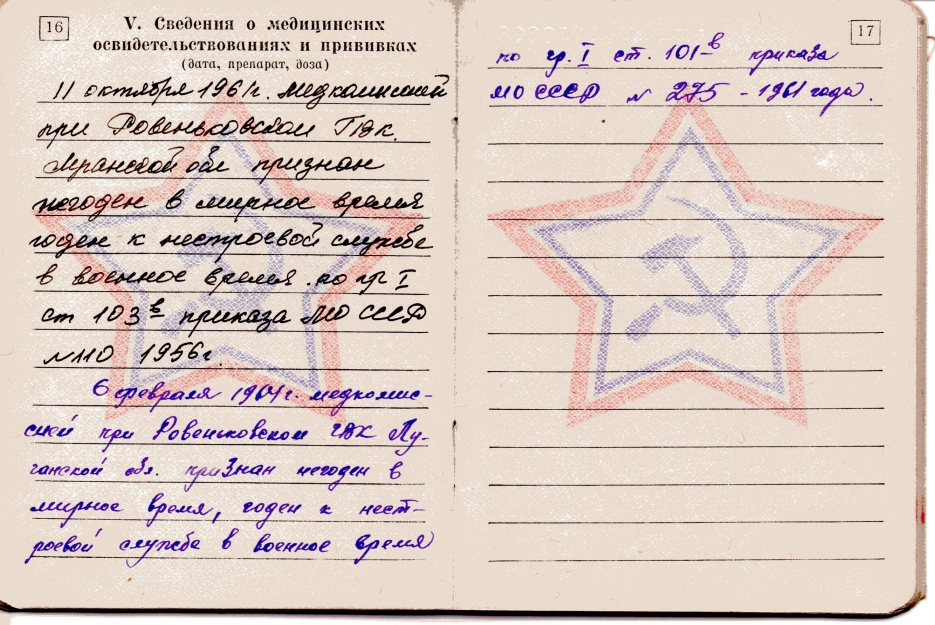 16
V. Сведения о медицинских
освидетельствованиях и прививках
(дата, препарат, доза)
11 октября 1961г. медкомиссией
при Ровеньковском ГВК.
Луганской обл признан
негоден в мирное время
годен к нестроевой службе
в военное время по гр I
ст 103 в приказа МО СССР
№110 1956г.
6 февраля 1964г. медкомис-
сией при Ровеньковском ГВК Лу-
ганской обл. признан негоден в
мирное время, годен к нест-
роевой службе в военное время
17
по гр. I ст. 101-в приказа
МО СССР № 275 - 1961 года.